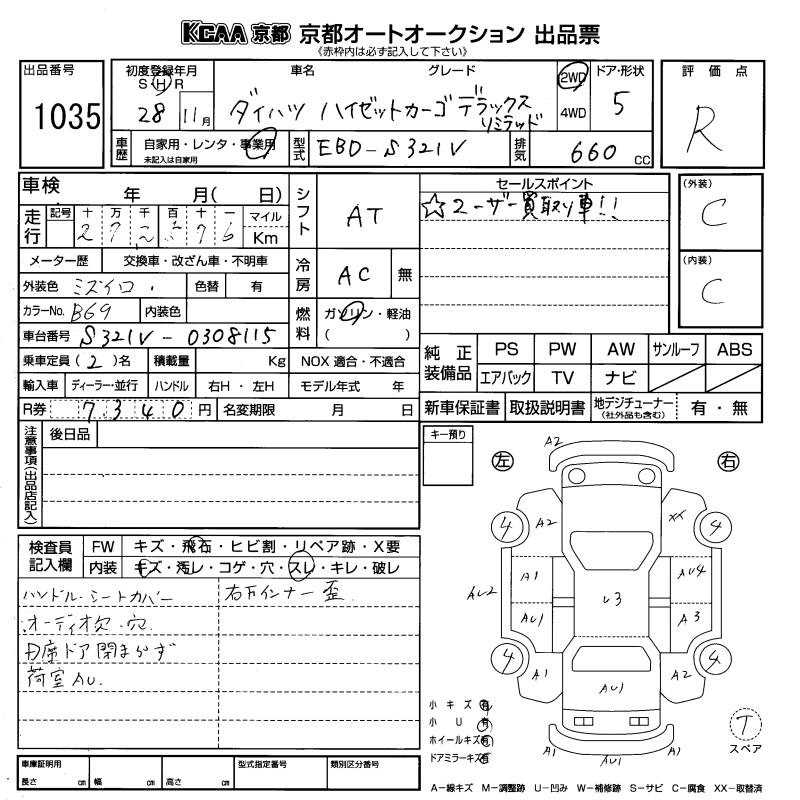 KCAA 京都 京都オートオークション 出品票
《赤枠内は必ず記入して下さい》
出品番号 1035
初度登録年月 S H R 28 11月
車名 グレード
ダイハツ ハイゼットカーゴ デラックス
リミテッド
2WD 4WD
ドア・形状 5
評価点 R
車歴 自家用・レンタ・事業用
未記入は自家用
型式 EBD-S321V
排気 660 CC
車検 年 月( 日)
走行 記号 十 万 千 百 十 一 マイル Km
シフト AT
セールスポイント
☆ユーザー買取り車!!
(外装) C
(内装) C
メーター歴 交換車・改ざん車・不明車
冷房 AC 無
外装色 ミズイロ 色替 有
カラーNo. B69 内装色
燃料 ガソリン・軽油
( )
車台番号 S321V-0308115
乗車定員(2)名 積載量 Kg NOX 適合・不適合
輸入車 ディーラー・並行 ハンドル 右H・左H モデル年式 年
R券 7340円 名変期限 月 日
純正装備品 PS PW AW サンルーフ ABS
エアバック TV ナビ
新車保証書 取扱説明書 地デジチューナー
(社外品も含む) 有・無
注意事項(出品店記入)
後日品
キー預り
検査員記入欄 FW キズ・飛石・ヒビ割・リペア跡・X要
内装 キズ・汚レ・コゲ・穴・スレ・キレ・破レ
ハンドル・シートカバー 右下インナー歪
オーディオ欠・穴
荷室AU.
左 右
A2
4 A2 XX 4
AU2 A1 U3 AU4
AU1 A3
4 A1 AU1 A2 4
A1 AU1 A1
小キズ 有
小U 有
ホイールキズ 有
ドアミラーキズ 有
T
スペア
車庫証明用 型式指定番号 類別区分番号
長さ cm 幅 cm 高さ cm
A−線キズ M−調整跡 U−凹み W−補修跡 S−サビ C−腐食 XX−取替済